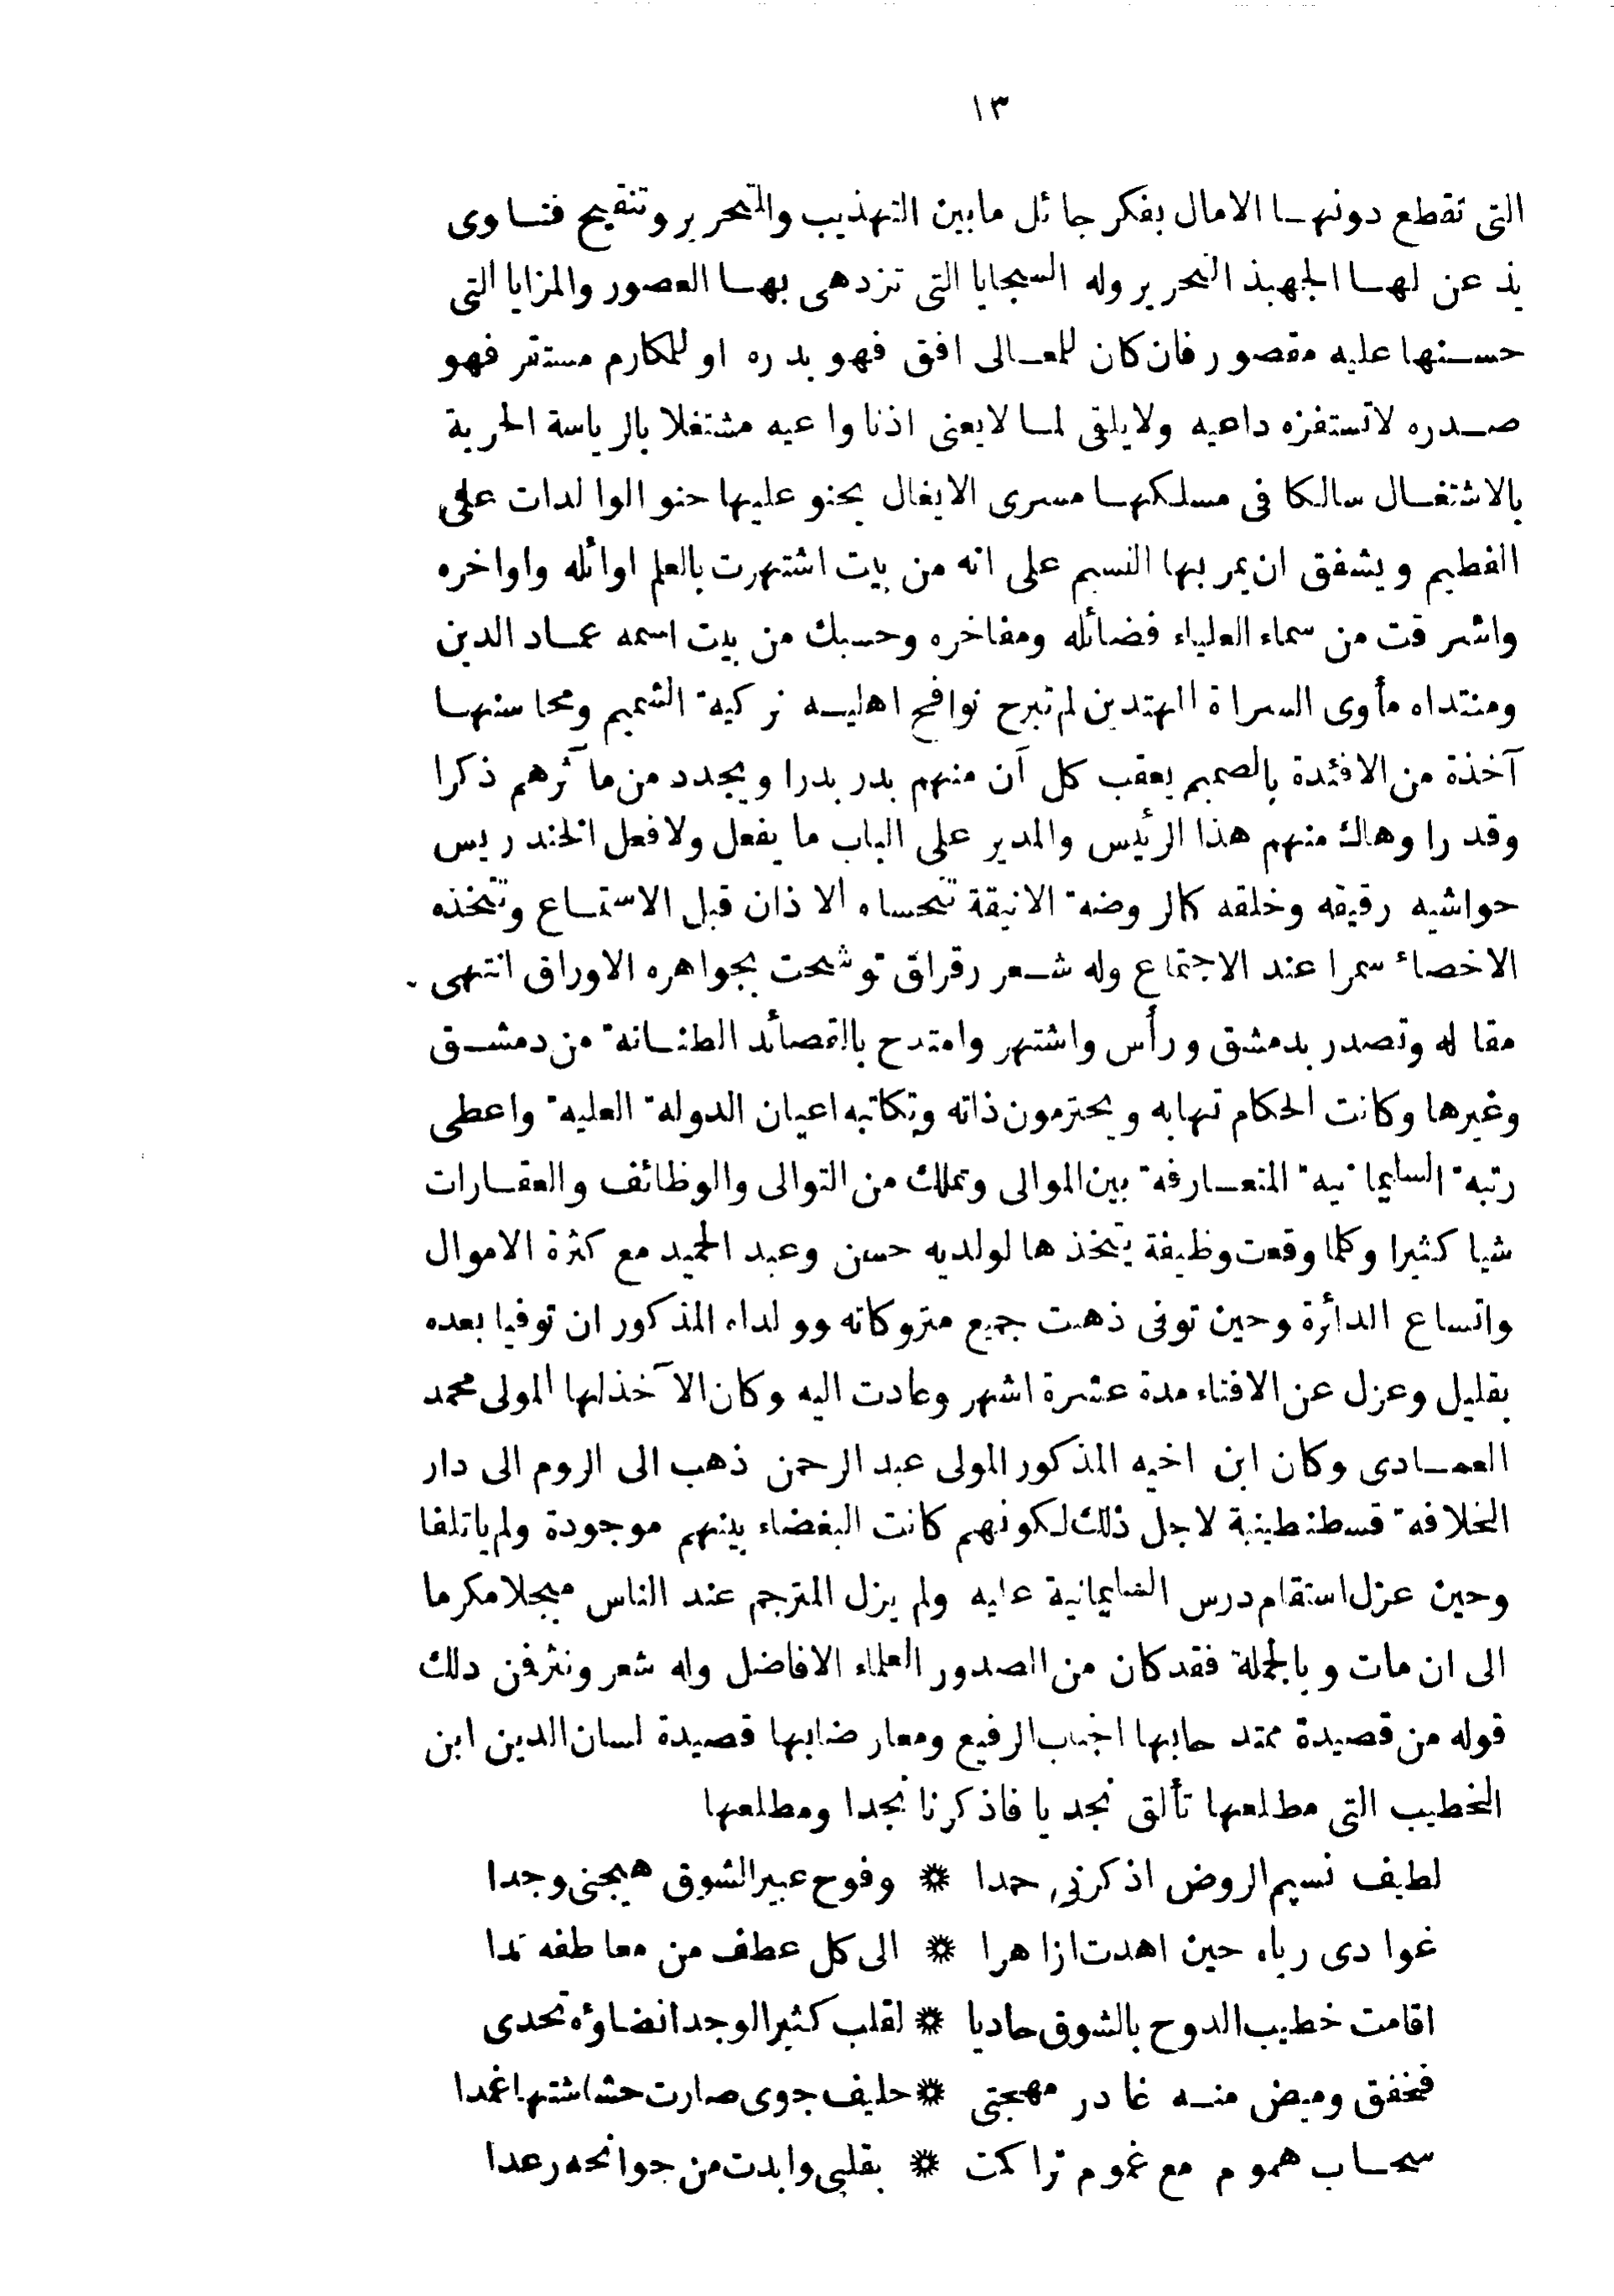 ١٣
التى تقطع دونها الامال بفكر جائل مابين التهذيب والتحرير وتنقيح فتاوى
يذعن لها الجهبذ النحرير وله السجايا التى تزدهى بها العصور والمزايا التى
حسنها عليه مقصور فان كان للمعالى افق فهو بدره او للمكارم مستقر فهو
صدره لاتستفزه داعيه ولايلقى لما لايعنى اذنا واعيه مشتغلا بالرياسة الحرية
بالاشتغال سالكا فى مسلكها مسرى الايغال يحنو عليها حنو الوالدات على
الفطيم ويشفق ان يمر بها النسيم على انه من بيت اشتهرت بالعلم اوائله واواخره
واشرقت من سماء العلياء فضائله ومفاخره وحسبك من بيت اسمه عماد الدين
ومنتداه مأوى السراة المهتدين لم تبرح نوافح اهليه زكية الشميم ومحاسنها
آخذة من الافئدة بالصميم يعقب كل آن منهم بدر بدرا ويجدد من مآثرهم ذكرا
وقدرا وهاك منهم هذا الرئيس والمدير على الباب ما يفعل ولافعل الخندريس
حواشيه رقيقه وخلقه كالروضة الانيقة تتحساه الاذان قبل الاستماع وتتخذه
الاخصاء سمرا عند الاجتماع وله شعر رقراق توشحت بجواهره الاوراق انتهى
مقاله وتصدر بدمشق ورأس واشتهر وامتدح بالقصائد الطنانة من دمشق
وغيرها وكانت الحكام تهابه ويحترمون ذاته وتكاتبه اعيان الدولة العلية واعطى
رتبة السليمانية المتعارفة بين الموالى وتملك من التوالى والوظائف والعقارات
شيا كثيرا وكلما وقعت وظيفة يتخذها لولديه حسن وعبد الحميد مع كثرة الاموال
واتساع الدائرة وحين توفى ذهبت جميع متروكاته وولداه المذكوران توفيا بعده
بقليل وعزل عن الافتاء مدة عشرة اشهر وعادت اليه وكان الآخذ لها المولى محمد
العمادى وكان ابن اخيه المذكور المولى عبد الرحمن ذهب الى الروم الى دار
الخلافة قسطنطينية لاجل ذلك لكونهم كانت البغضاء بينهم موجودة ولم ياتلفا
وحين عزل استقام درس السليمانية عليه ولم يزل المترجم عند الناس مبجلا مكرما
الى ان مات وبالجملة فقد كان من الصدور العلماء الافاضل وله شعر ونثر فن دلك
قوله من قصيدة ممتدحا بها الجناب الرفيع ومعارضا بها قصيدة لسان الدين ابن
الخطيب التى مطلعها تألق نجديا فاذكرنا نجدا ومطلعها
لطيف نسيم الروض اذكرنى حمدا ❋ وفوح عبير الشوق هيجنى وجدا
غوادى رباه حين اهدت ازاهرا ❋ الى كل عطف من معاطفه ندا
اقامت خطيب الدوح بالشوق حاديا ❋ لقلب كثير الوجد انضاؤه تحدى
فخفق وميض منه غادر مهجتى ❋ حليف جوى صارت حشاشتها غمدا
سحاب هموم مع غموم تراكمت ❋ بقلبى وابدت من جوانحه رعدا